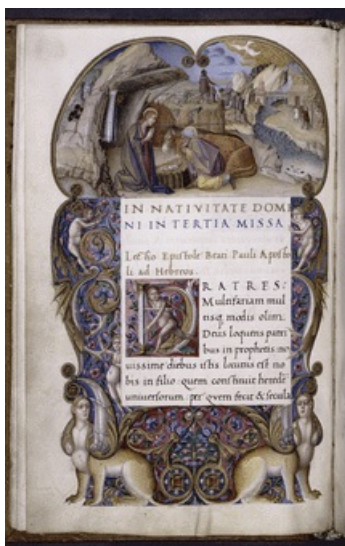 IN NATIVITATE DOMI
NI IN TERTIA MISSA
Lectio Epistole Beati Pauli Aposto
li ad Hebreos.
FRATRES:
Multifariam mul
tisq modis olim
Deus loquens patri
bus in prophetis: no
uissime diebus istis locutus est no
bis in filio: quem constituit herede
uniuersorum: per quem fecit & secula